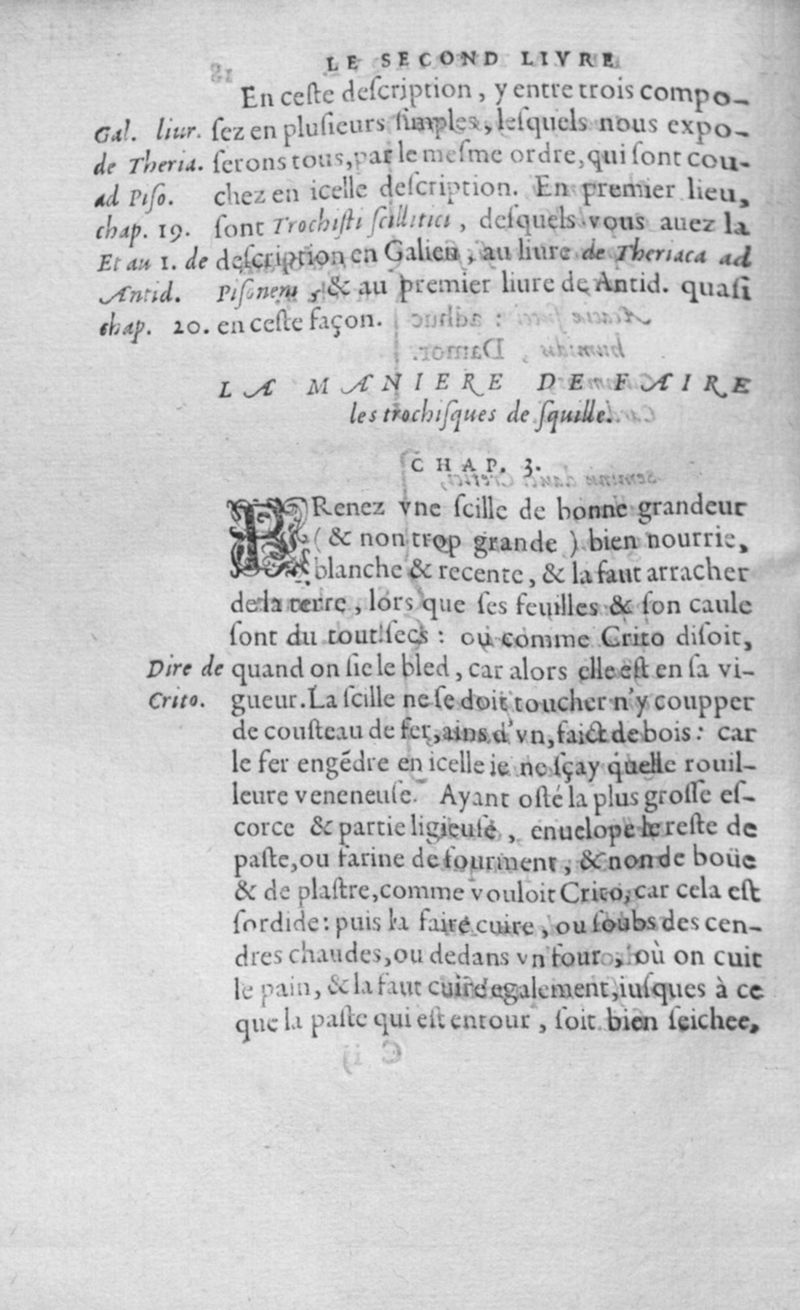 LE SECOND LIVRE
En ceſte deſcription, y entre trois compo-
ſez en pluſieurs ſimples, leſquels nous expo-
ſerons tous, par le meſme ordre, qui ſont cou-
chez en icelle deſcription. En premier lieu,
ſont Trochiſti ſcillitici, deſquels vous auez la
deſcription en Galien, au liure de Theriaca ad
Piſonem, & au premier liure de Antid. quaſi
en ceſte façon.
Gal. liur.
de Theria.
ad Piſo.
chap. 19.
Et au 1. de
Antid.
chap. 20.
LA MANIERE DE FAIRE
les trochiſques de ſquille.
CHAP. 3.
PRenez vne ſcille de bonne grandeur
(& non trop grande) bien nourrie,
blanche & recente, & la faut arracher
de la terre, lors que ſes feuilles & ſon caule
ſont du tout ſecs: ou comme Crito diſoit,
quand on ſie le bled, car alors elle eſt en ſa vi-
gueur. La ſcille ne ſe doit toucher n'y coupper
de couſteau de fer, ains d'vn, faict de bois: car
le fer engẽdre en icelle ie ne ſçay quelle rouil-
leure veneneuſe. Ayant oſté la plus groſſe eſ-
corce & partie ligieuſe, enuelope le reſte de
paſte, ou farine de fourment, & non de boüe
& de plaſtre, comme vouloit Crito, car cela eſt
ſordide: puis la faire cuire, ou ſoubs des cen-
dres chaudes, ou dedans vn four, où on cuit
le pain, & la faut cuire egalement, iuſques à ce
que la paſte qui eſt entour, ſoit bien ſeichee,
Dire de
Crito.